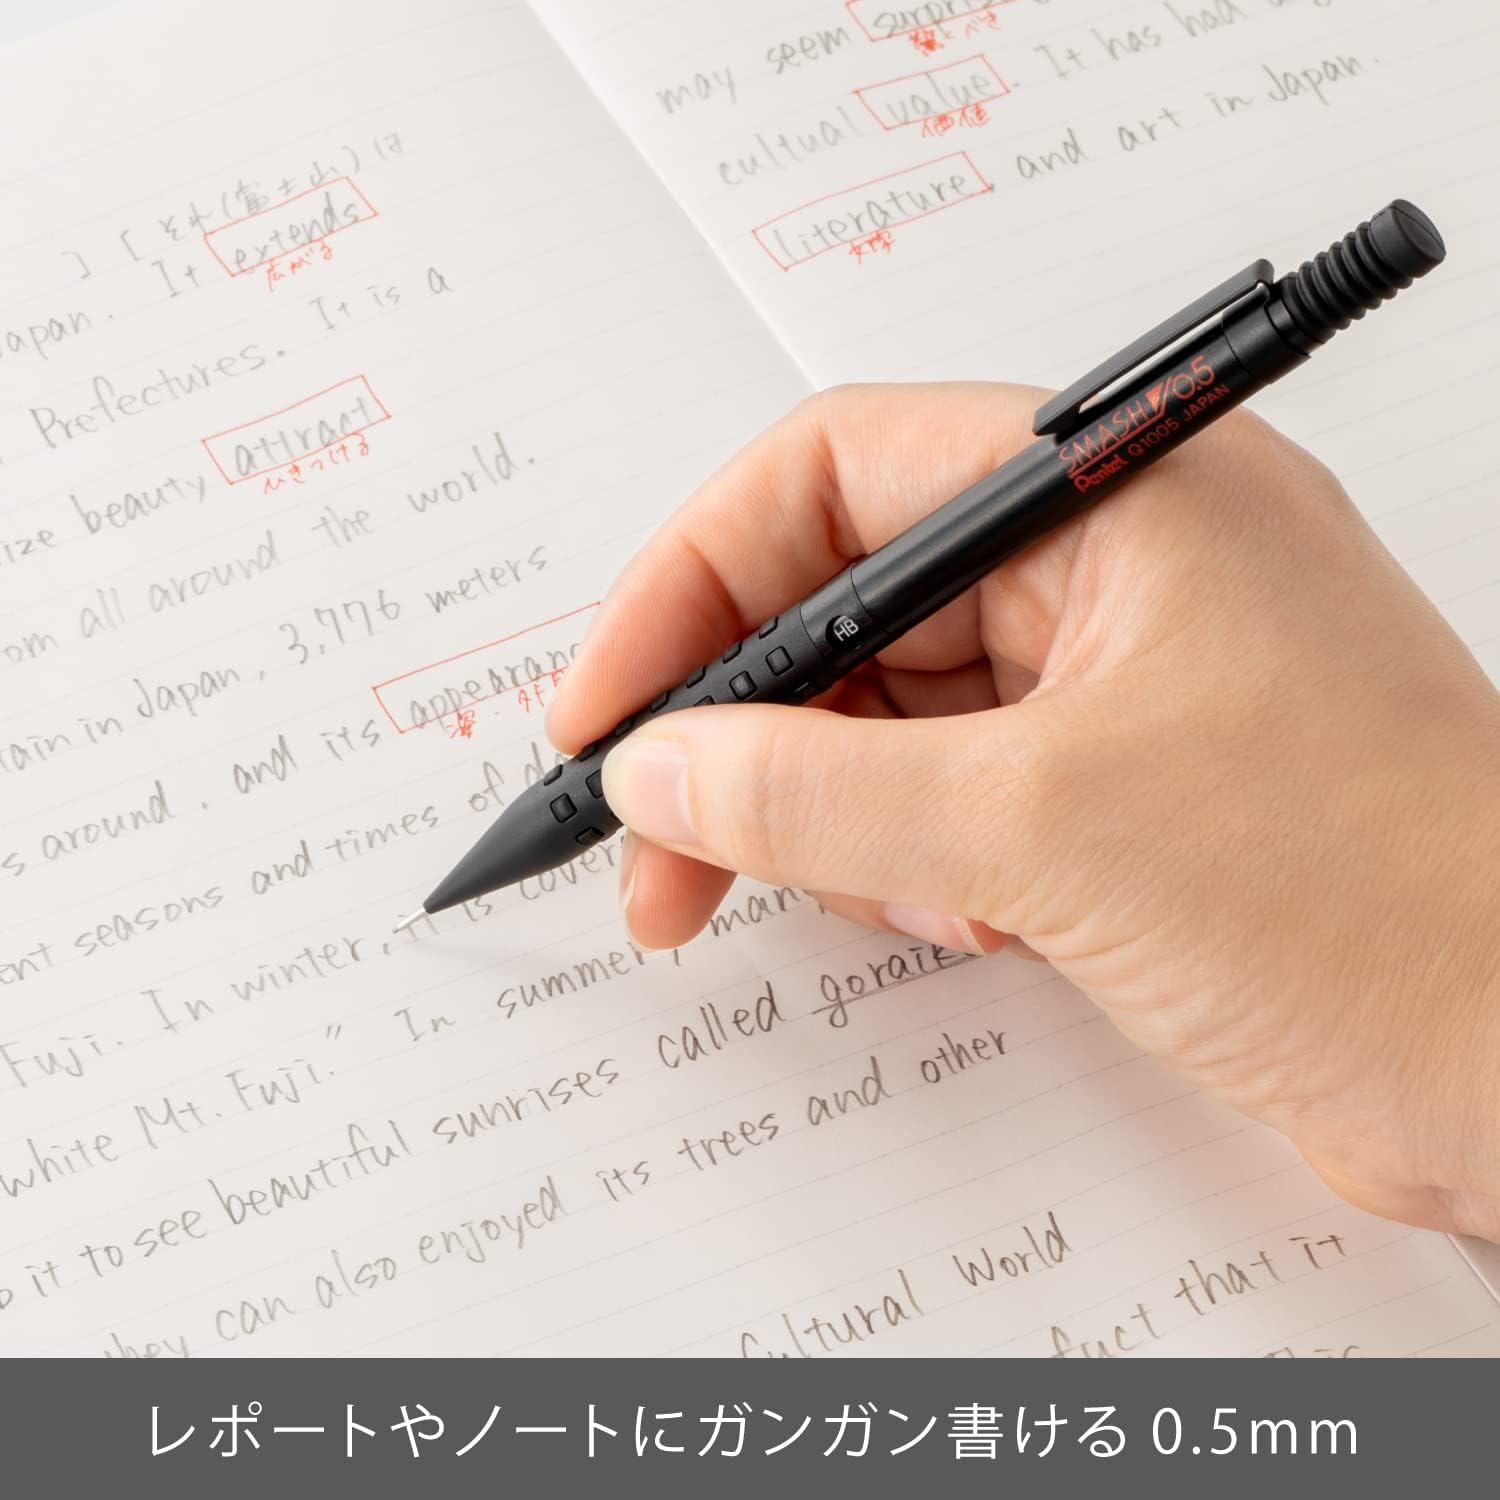 ] [ それ(富士山)は
Japan. It extends
広がる
Prefectures. It is a
ize beauty attract
ひきつける
om all around the world.
tain in Japan, 3,776 meters
s around, and its appearanc
姿・外
ent seasons and times of da
Fuji. In winter, it is cover
white Mt. Fuji." In summer, man
o it to see beautiful sunrises called goraik
they can also enjoyed its trees and other
Cultural World
fact that it
may seem surpris
驚くべき
cultual value. It has had
価値
literature, and art in Japan.
文学
SMASH 0.5
Pentel Q1005 JAPAN
HB
レポートやノートにガンガン書ける 0.5mm